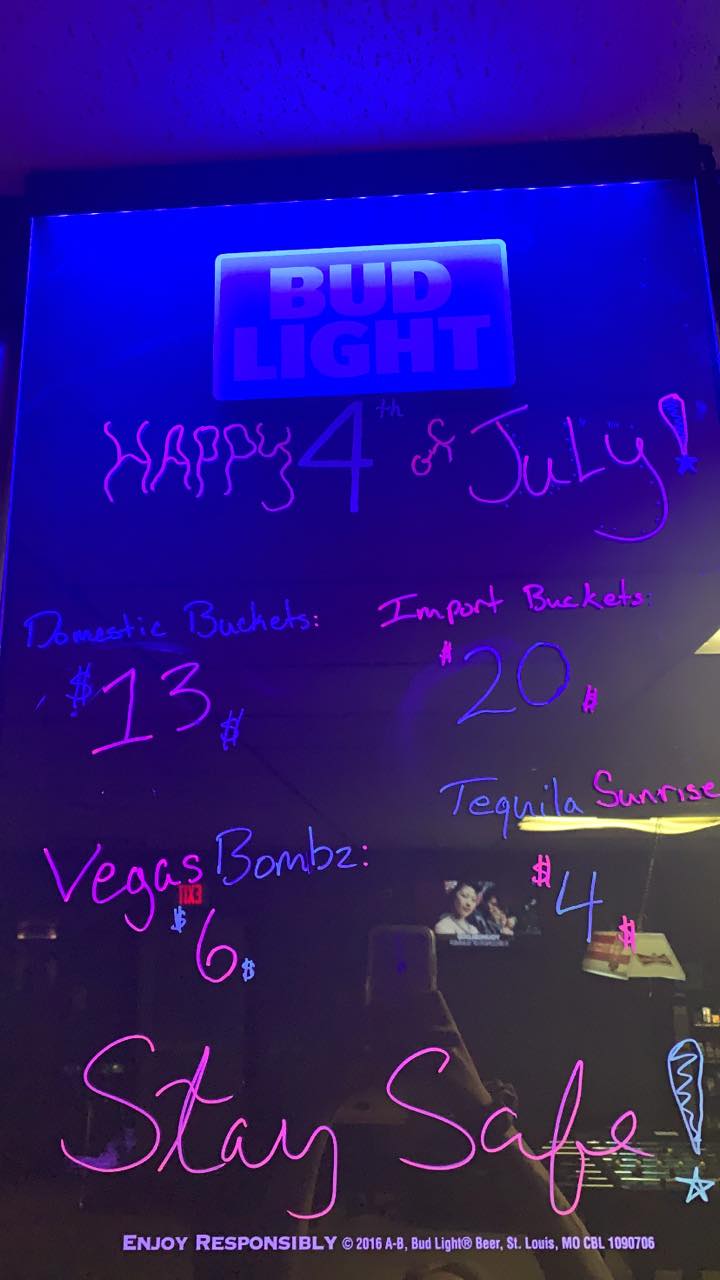 BUD
LIGHT
HAPPY 4th of July!
Domestic Buckets:
$13$
Import Buckets:
$20$
Tequila Sunrise
$4$
Vegas Bombz:
$6$
Stay Safe!
ENJOY RESPONSIBLY © 2016 A-B, Bud Light® Beer, St. Louis, MO CBL 1090706